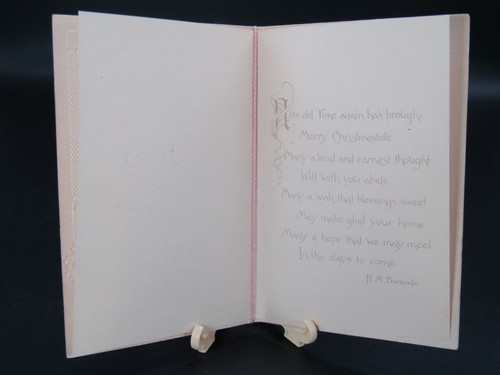 old Time again has brought
Merry Christmastide
Many a kind and earnest thought
Will with you abide
Many a wish that blessings sweet
May make glad your home
Many a hope that we may meet
In the days to come.
H. M. Burnside